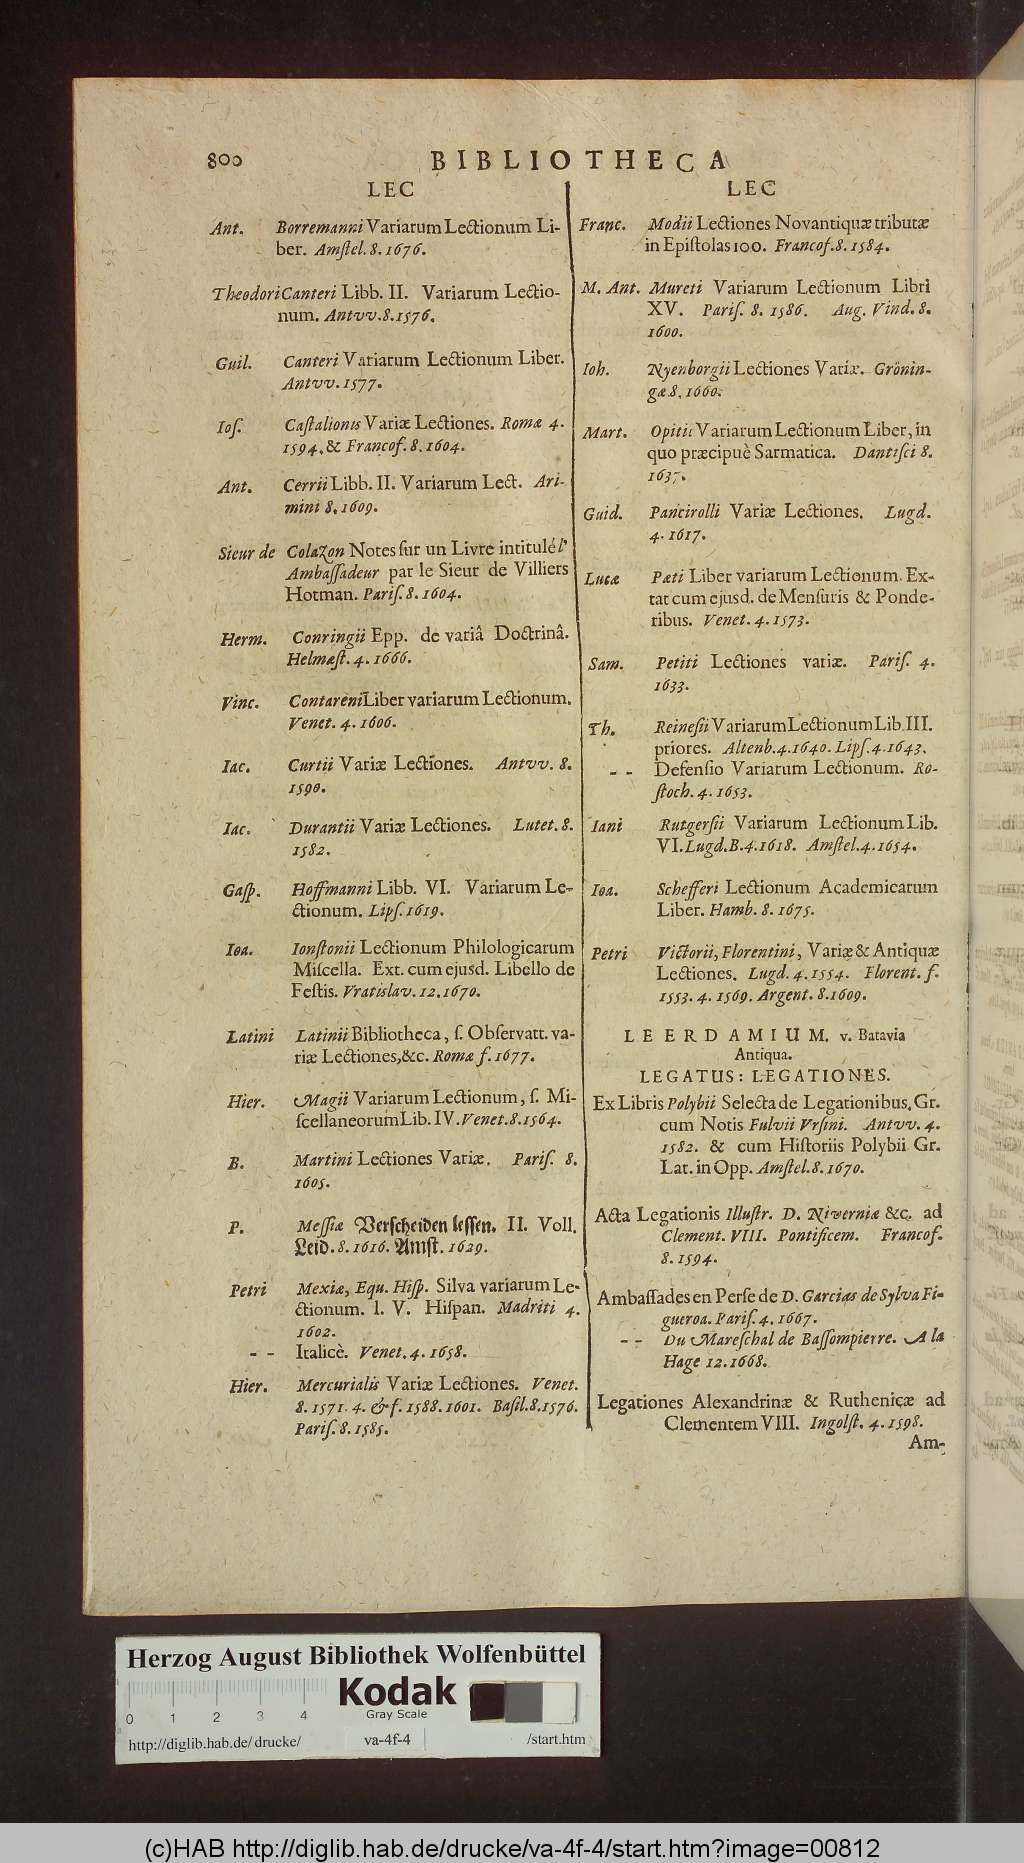 800 BIBLIOTHECA
LEC
Ant. Borremanni Variarum Lectionum Li-
ber. Amſtel. 8. 1676.
Theodori Canteri Libb. II. Variarum Lectio-
num. Antvv. 8. 1576.
Guil. Canteri Variarum Lectionum Liber.
Antvv. 1577.
Ioſ. Caſtalionis Variæ Lectiones. Romæ 4.
1594. & Francof. 8. 1604.
Ant. Cerrii Libb. II. Variarum Lect. Ari-
mini 8. 1609.
Sieur de Colazon Notes ſur un Livre intitulé l'
Ambaſſadeur par le Sieur de Villiers
Hotman. Pariſ. 8. 1604.
Herm. Conringii Epp. de variâ Doctrinâ.
Helmæſt. 4. 1666.
Vinc. Contareni Liber variarum Lectionum.
Venet. 4. 1606.
Iac. Curtii Variæ Lectiones. Antvv. 8.
1590.
Iac. Durantii Variæ Lectiones. Lutet. 8.
1582.
Gaſp. Hoffmanni Libb. VI. Variarum Le-
ctionum. Lipſ. 1619.
Ioa. Ionſtonii Lectionum Philologicarum
Miſcella. Ext. cum ejusd. Libello de
Feſtis. Vratislav. 12. 1670.
Latini Latinii Bibliotheca, ſ. Obſervatt. va-
riæ Lectiones, &c. Romæ f. 1677.
Hier. Magii Variarum Lectionum, ſ. Mi-
ſcellaneorum Lib. IV. Venet. 8. 1564.
B. Martini Lectiones Variæ. Pariſ. 8.
1605.
P. Meſſiæ Verſcheiden leſſen. II. Voll.
Leid. 8. 1616. Amſt. 1629.
Petri Mexiæ, Equ. Hiſp. Silva variarum Le-
ctionum. l. V. Hiſpan. Madriti 4.
1602.
- - Italicè. Venet. 4. 1658.
Hier. Mercurialis Variæ Lectiones. Venet.
8. 1571. 4. & f. 1588. 1601. Baſil. 8. 1576.
Pariſ. 8. 1585.
LEC
Franc. Modii Lectiones Novantiquæ tributæ
in Epiſtolas 100. Francof. 8. 1584.
M. Ant. Mureti Variarum Lectionum Libri
XV. Pariſ. 8. 1586. Aug. Vind. 8.
1600.
Ioh. Nyenborgii Lectiones Variæ. Grönin-
gæ 8. 1660.
Mart. Opitii Variarum Lectionum Liber, in
quo præcipuè Sarmatica. Dantiſci 8.
1637.
Guid. Pancirolli Variæ Lectiones. Lugd.
4. 1617.
Lucæ Pæti Liber variarum Lectionum. Ex-
tat cum ejusd. de Menſuris & Ponde-
ribus. Venet. 4. 1573.
Sam. Petiti Lectiones variæ. Pariſ. 4.
1633.
Th. Reineſii Variarum Lectionum Lib. III.
priores. Altenb. 4. 1640. Lipſ. 4. 1643.
- - Defenſio Variarum Lectionum. Ro-
ſtoch. 4. 1653.
Iani Rutgerſii Variarum Lectionum Lib.
VI. Lugd. B. 4. 1618. Amſtel. 4. 1654.
Ioa. Schefferi Lectionum Academicarum
Liber. Hamb. 8. 1675.
Petri Victorii, Florentini, Variæ & Antiquæ
Lectiones. Lugd. 4. 1554. Florent. f.
1553. 4. 1569. Argent. 8. 1609.
LEERDAMIUM. v. Batavia
Antiqua.
LEGATUS: LEGATIONES.
Ex Libris Polybii Selecta de Legationibus. Gr.
cum Notis Fulvii Vrſini. Antvv. 4.
1582. & cum Hiſtoriis Polybii Gr.
Lat. in Opp. Amſtel. 8. 1670.
Acta Legationis Illuſtr. D. Niverniæ &c. ad
Clement. VIII. Pontificem. Francof.
8. 1594.
Ambaſſades en Perſe de D. Garcias de Sylva Fi-
gueroa. Pariſ. 4. 1667.
- - Du Mareſchal de Baſſompierre. A la
Hage 12. 1668.
Legationes Alexandrinæ & Ruthenicæ ad
Clementem VIII. Ingolſt. 4. 1598.
Am-
Herzog August Bibliothek Wolfenbüttel
Kodak
Gray Scale
0 1 2 3 4
http://diglib.hab.de/drucke/ va-4f-4 /start.htm
(c)HAB http://diglib.hab.de/drucke/va-4f-4/start.htm?image=00812